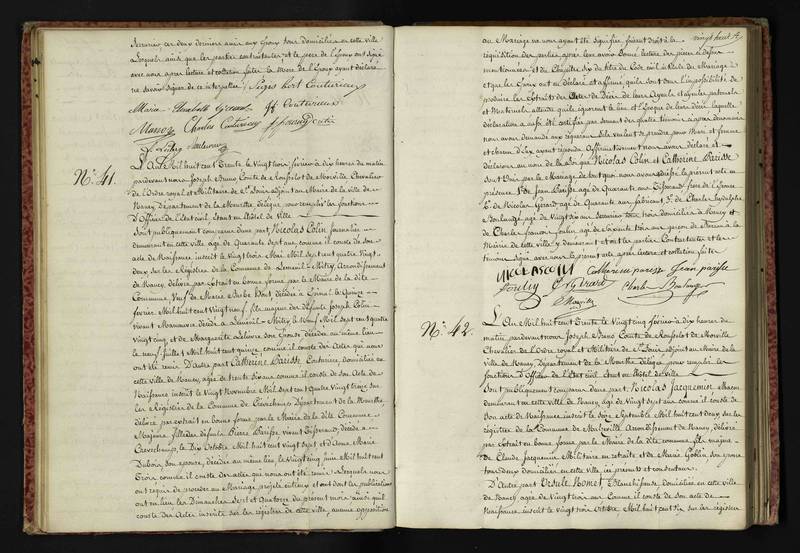 Serrurier, ces deux derniers amis aux Epoux tous domiciliés en cette ville
Lesquels ainsi que les parties contractantes et le père de l'Epoux ont signé
avec nous après lecture et collation faite la Mère de l'Epouse ayant déclaré
ne savoir signer de ce interpellée
Marie Elisabeth Couturieux
Masson Charles Couturieux
N°. 41.
L'An Mil huit cent Trente le Vingt trois février à dix heures du matin
pardevant nous Joseph Bruno Comte de Rousselot de Morville Chevalier
de l'Ordre royal et Militaire de St. Louis adjoint au Maire de la ville de
Nancy Département de la Meurthe délégué pour remplir les fonctions
d'Officier de l'Etat civil étant en l'hôtel de Ville
Sont publiquement comparus d'une part Nicolas Colin journalier
demeurant en cette ville âgé de Quarante sept ans comme il conste de son
acte de Naissance inscrit le Vingt trois Mai Mil sept cent quatre Vingt
deux sur les Registres de la Commune de Leménil-Mitry, Arrondissement
de Nancy, délivré par Extrait en bonne forme par le Maire de la dite
Commune, Veuf de Marie Barbe décédée à Epinal le Quinze
février Mil huit cent Vingt neuf, fils majeur des défunts Joseph Colin
vivant Manœuvre décédé à Leménil-Mitry le Mil sept cent quatre
Vingt cinq, et de Marguerite son Epouse décédée au même lieu
le neuf Juillet Mil huit cent quinze comme il conste des Actes qui nous
ont été remis D'autre part Catherine Parisse Couturière, domiciliée en
cette ville de Nancy, âgée de trente six ans comme il conste de son Acte de
Naissance inscrit le Vingt Novembre Mil sept cent quatre Vingt treize sur
les Registres de la Commune de Crévéchamps Département de la Meurthe,
délivré par extrait en bonne forme par le Maire de la dite Commune
Majeure fille des défunts Pierre Parisse, vivant Tisserand, décédé à
Crévéchamps, le Dix Octobre Mil huit cent Vingt sept et d'Anne Marie
Dubois, son épouse, décédée au même lieu, le Vingt cinq Juin Mil huit cent
Trois comme il conste des actes qui nous ont été remis Lesquels nous
ont requis de procéder au Mariage projeté entr'eux et dont les publications
ont eu lieu les Dimanches Sept et Quatorze du présent mois ainsi qu'il
conste des Actes inscrits sur les registres de cette ville, aucune opposition
vingt huit
au Mariage ne nous ayant été signifiée faisant droit à la
réquisition des parties après leur avoir donné lecture des pièces ci-dessus
mentionnées et du Chapitre six du titre du Code civil intitulé du Mariage
et que les Epoux ont eu déclaré et affirmé qu'ils sont dans l'impossibilité de
produire les Extraits des Actes de Décès de leurs Ayeuls et Ayeules paternels
et Maternels attendu qu'ils ignorent le lieu et l'époque de leur décès laquelle
déclaration a aussi été certifiée par serment des quatre témoins ci-après dénommés
nous avons demandé aux requérans s'ils veulent se prendre pour Mari et femme
et chacun d'Eux ayant répondu Affirmativement nous avons déclaré et
déclarons au nom de la Loi que Nicolas Colin et Catherine Parisse
Sont Unis par le Mariage de tout quoi nous avons dressé le présent acte en
présence de Jean Parisse âgé de Quarante ans Tisserand frère de l'Epouse
de Nicolas Gérard âgé de Quarante ans, de Charles
Boulangé âgé de Vingt six ans Serrurier tous trois domiciliés à Nancy et
de Charles François Joulin âgé de Soixante trois ans garçon de bureau à la
Mairie de cette ville y demeurant et ont les parties Contractantes et les
témoins signé avec nous le présent acte après lecture et collation faite
NICOLAS COLIN Catherine parisse Jean parisse
Joulin Gérard Charles Boulangé
N°. 42.
L'An Mil huit cent Trente le Vingt cinq février à dix heures du
matin pardevant nous Joseph Bruno Comte de Rousselot de Morville
Chevalier de l'Ordre royal et Militaire de St. Louis adjoint au Maire de la ville
de Nancy Département de la Meurthe délégué pour remplir les
fonctions d'Officier de l'Etat civil étant en l'hôtel de ville
Sont publiquement comparus d'une part Nicolas Jacquemin Maçon
demeurant en cette ville de Nancy âgé de Vingt sept ans comme il conste de
son acte de Naissance inscrit le Septembre Mil huit cent deux sur les
registres de la Commune de Arrondissement de Nancy, délivré
par Extrait en bonne forme par le Maire de la dite commune, fils majeur
de Claude Jacquemin Militaire en retraite et de Marie Goblin son épouse
tous deux domiciliés en cette ville, ici présents et consentans
D'Autre part Ursule Blanchisseuse, domiciliée en cette ville
de Nancy âgée de Vingt trois ans comme il conste de son acte de
Naissance inscrit le Vingt trois Octobre Mil huit cent six sur les registres